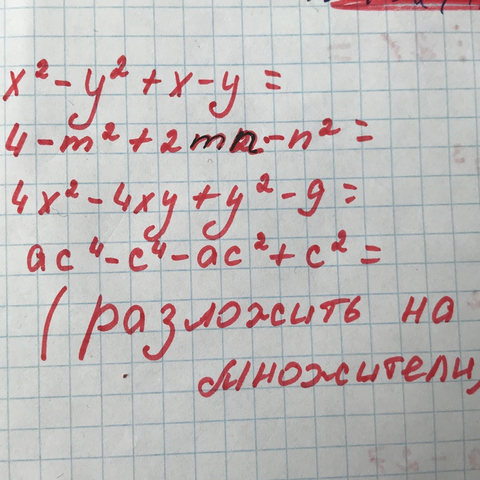 x² - y² + x - y =
4 - m² + 2mn - n² =
4x² - 4xy + y² - 9 =
ac⁴ - c⁴ - ac² + c² =
(разложить на
множители,